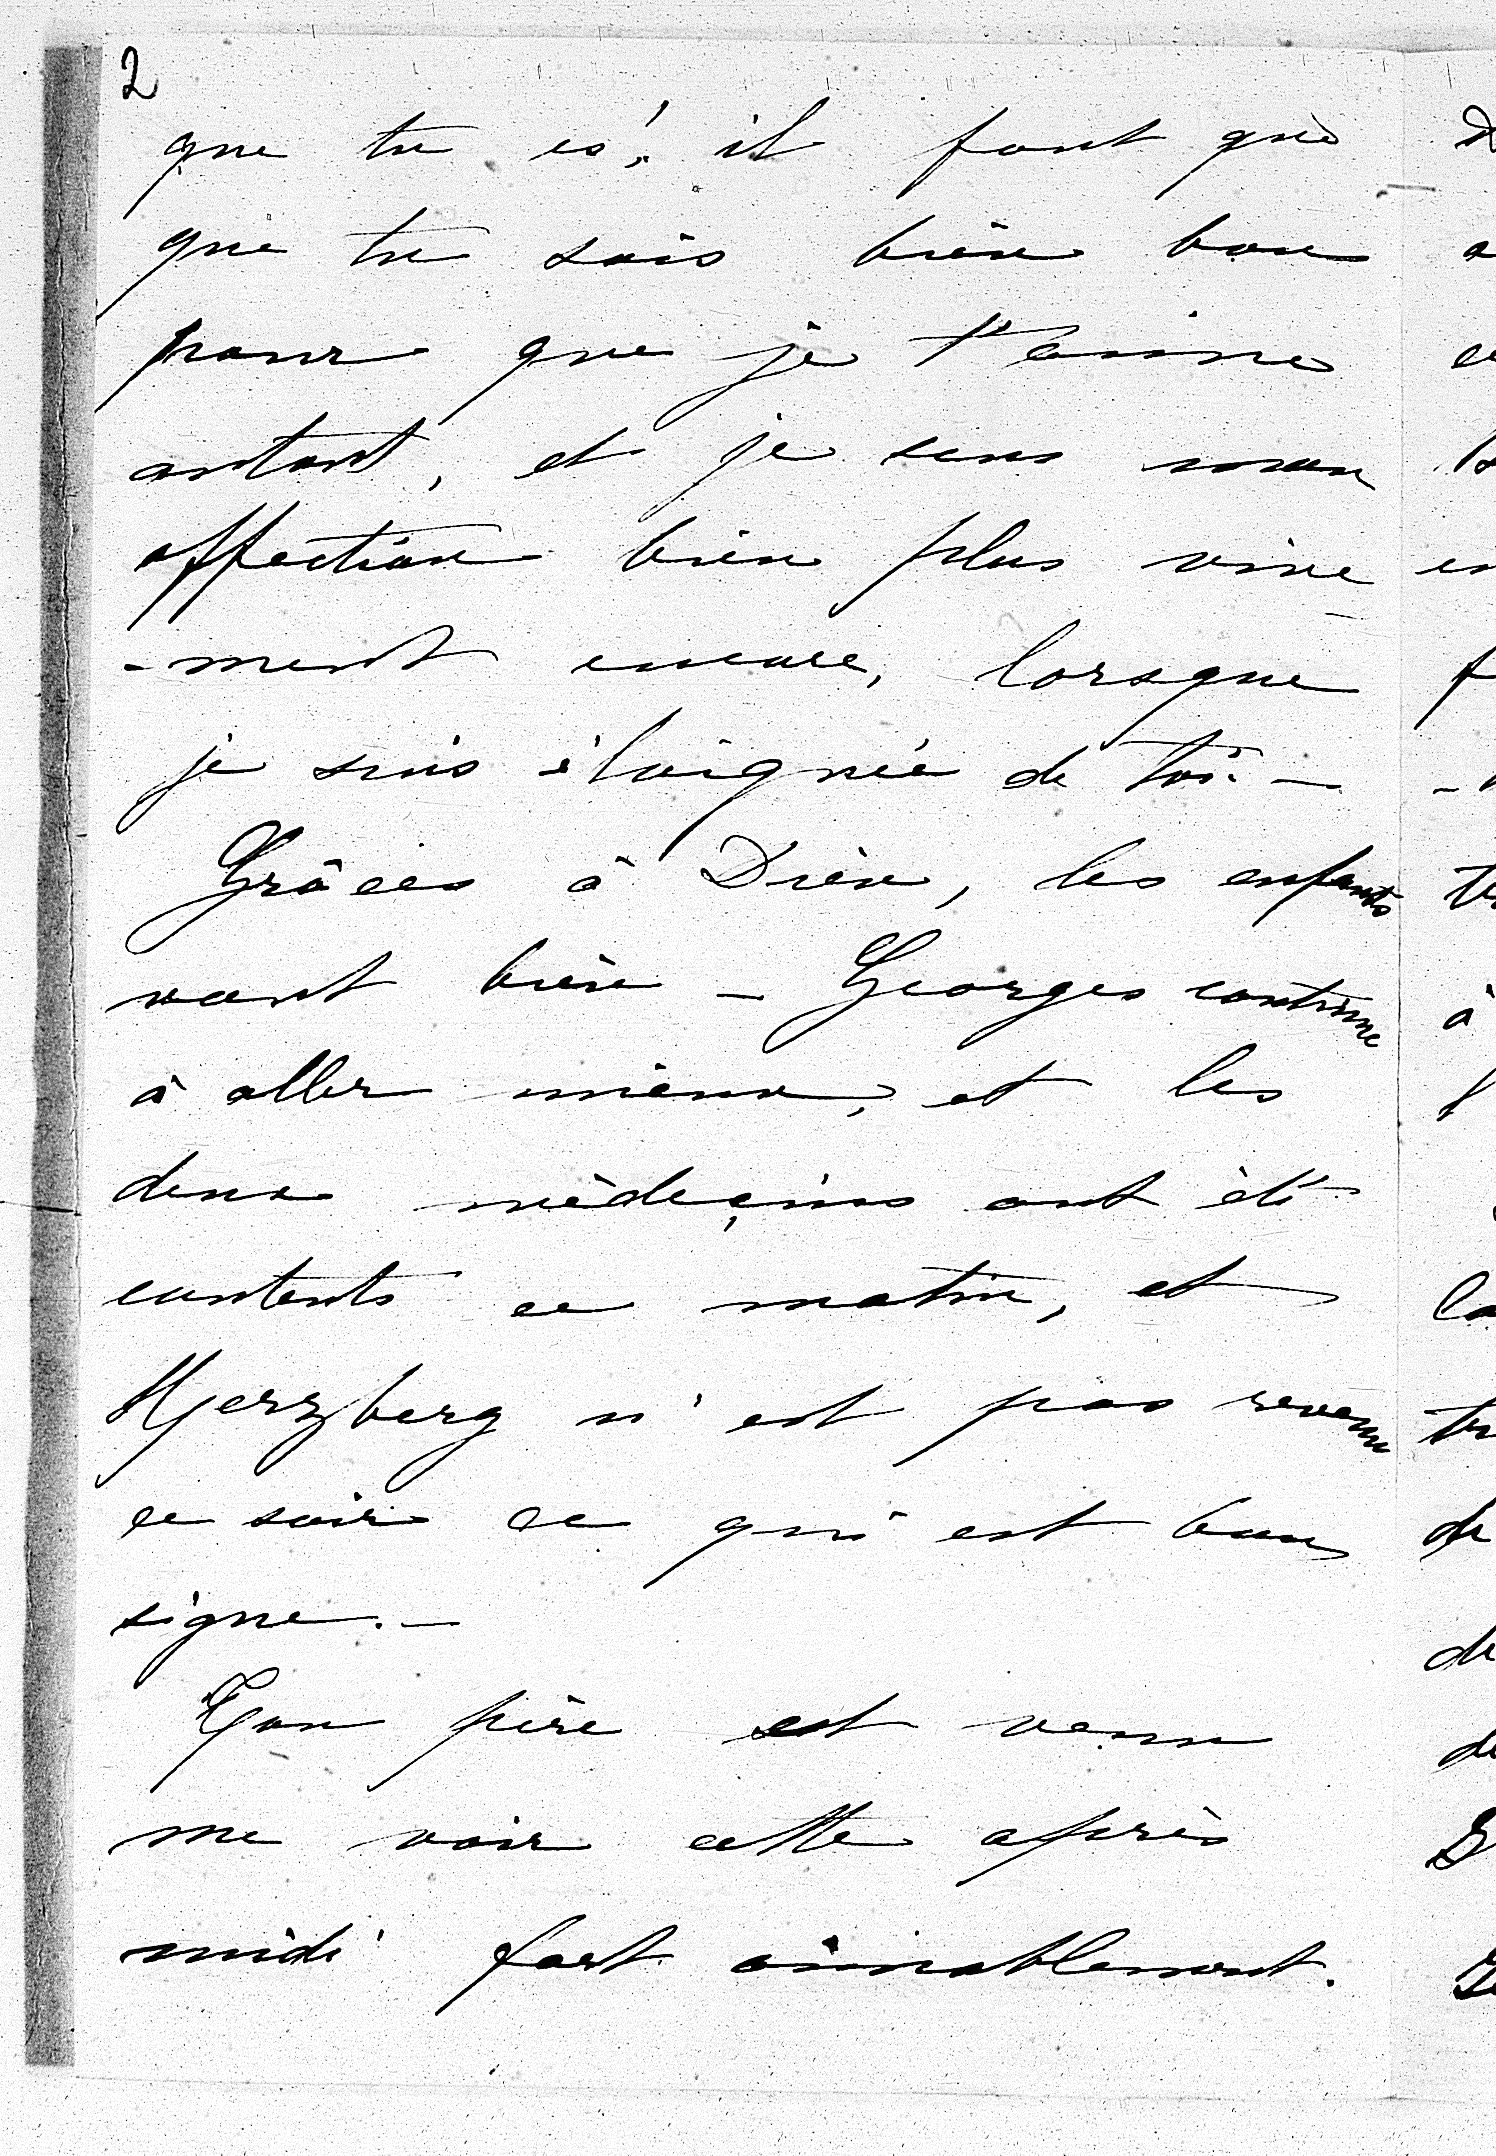 2
que tu es! il faut que
que tu sois bien bon
pour que je t'aime
autant, et je sens mon
affection bien plus vive
-ment encore, lorsque
je suis éloignée de toi. —
Grâces à Dieu, les enfants
vont bien — Georges continue
à aller mieux, et les
deux médecins ont été
contents ce matin, et
Herzberg n'est pas revenu
ce soir ce qui est bon
signe. —
Ton père est venu
me voir cette après
midi fort aimablement.